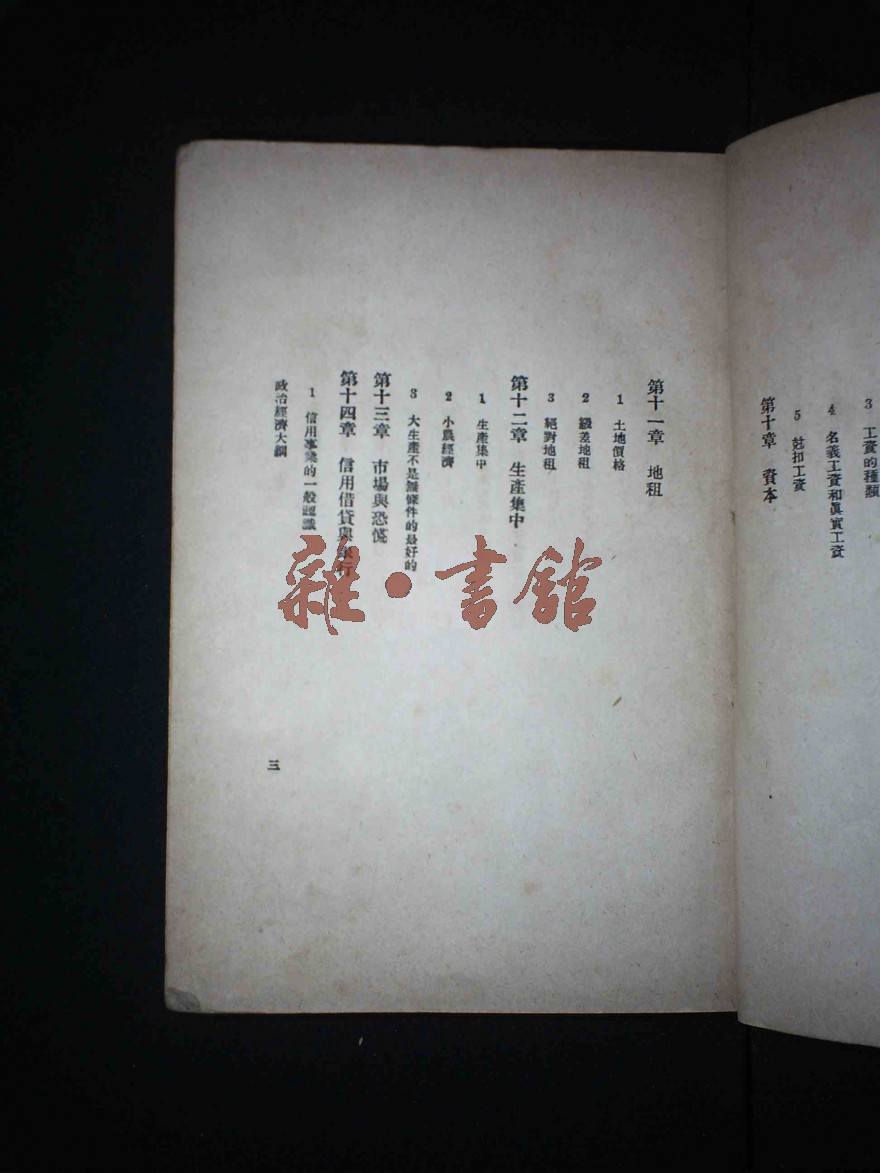 3 工資的種類
4 名義工資和眞實工資
5 尅扣工資
第十章 資本
第十一章 地租
1 土地價格
2 級差地租
3 絕對地租
第十二章 生產集中
1 生產集中
2 小農經濟
3 大生產不是無條件的最好的
第十三章 市場與恐慌
第十四章 信用借貸與銀行
1 信用事業的一般認識
政治經濟大綱
三
雜·書館